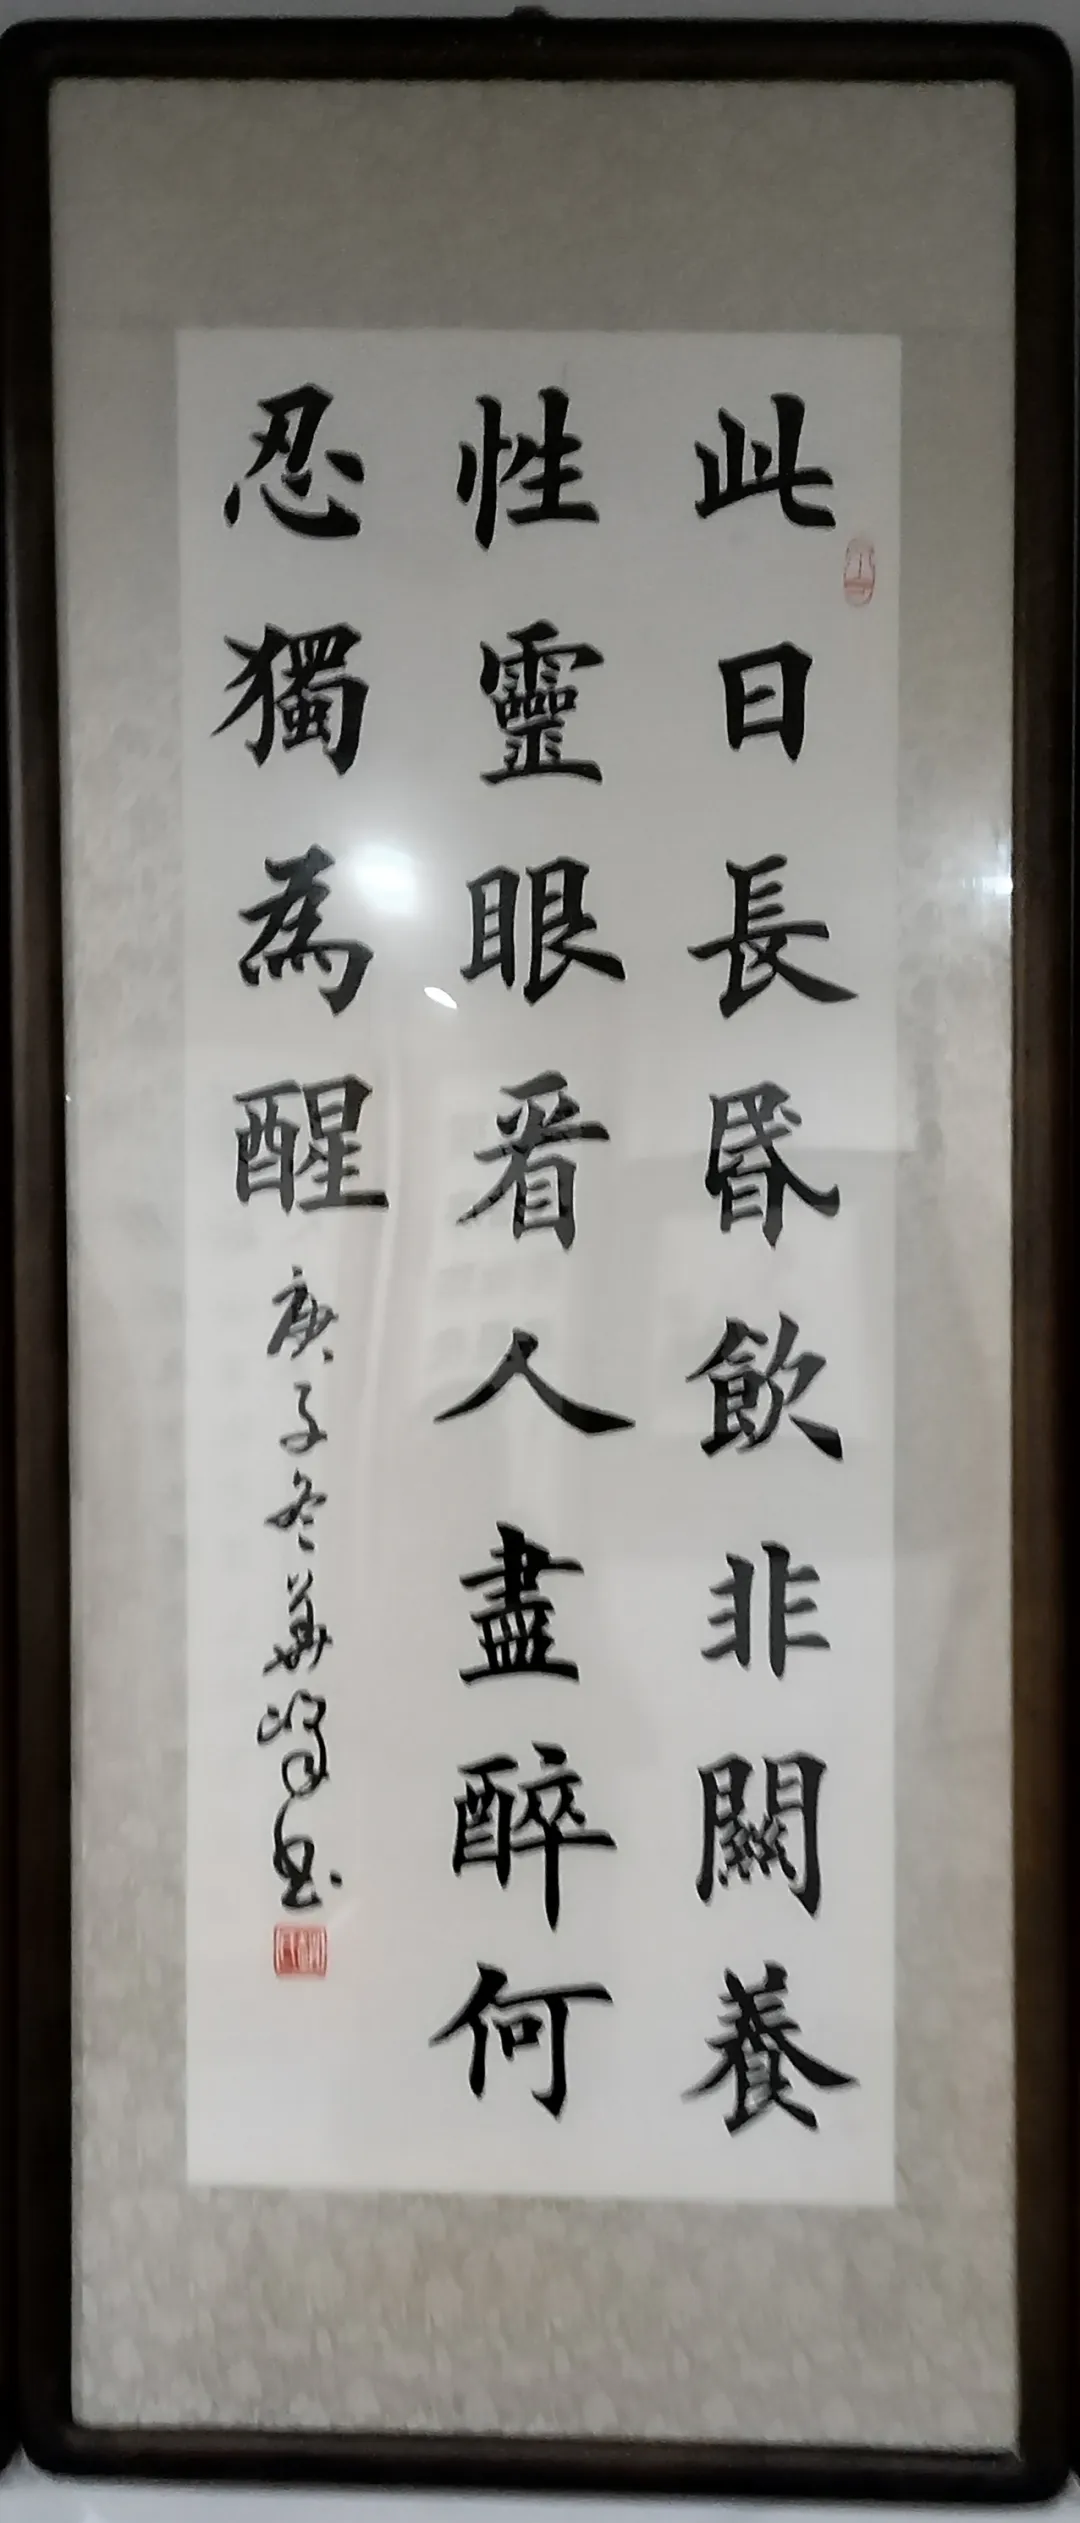 此日長昏飲非關養
性靈眼看人盡醉何
忍獨為醒庚子冬華峰书